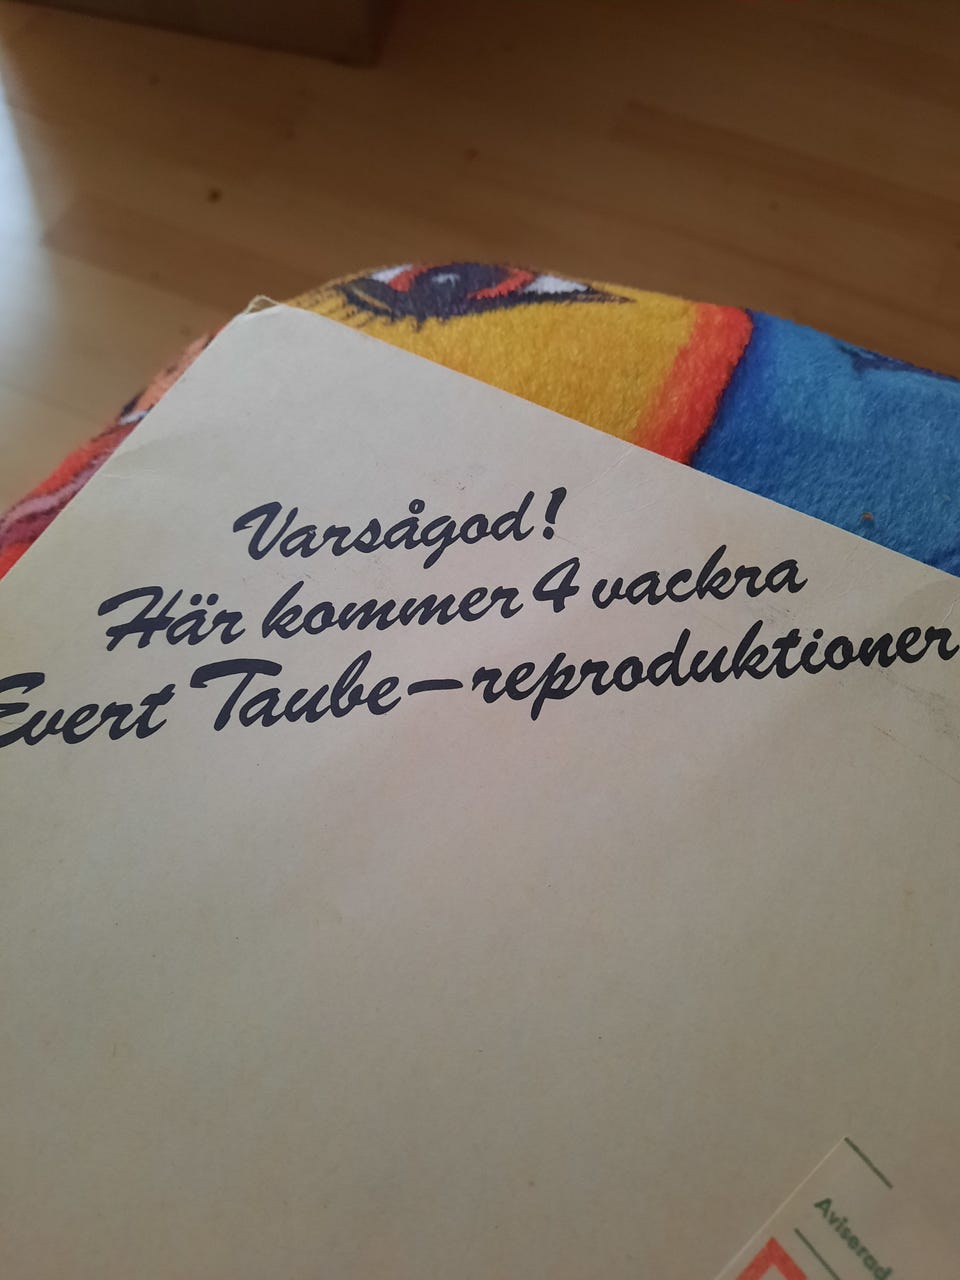 Varsågod!
Här kommer 4 vackra
Evert Taube-reproduktioner
Aviserad